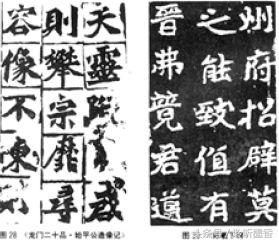 夫靈
則攀宗靡尋
容像不陳
州府招辟莫
之能致值有
晉弗竟君遵
图28 《龙门二十品·始平公造像记》